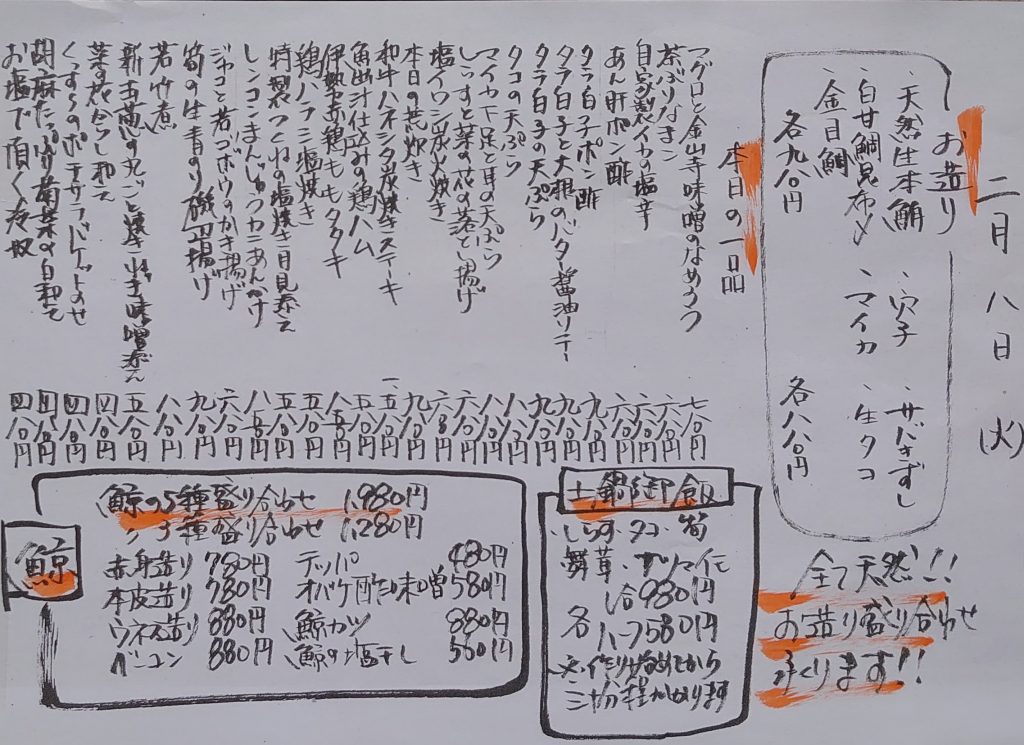 二月八日(火)
お造り
・天然生本鮪
・白甘鯛昆布〆
・金目鯛
各九八〇円
・穴子
・マイカ
・サバきずし
・生タコ
各八八〇円
全て天然!!
お造り盛り合わせ
承ります!!
本日の一品
マグロと金山寺味噌のなめろう 七八〇円
茶ぶりなまこ 六八〇円
自家製イカの塩辛 六八〇円
あん肝ポン酢
タラ白子ポン酢 九八〇円
タラ白子と大根のバタ醤油ソテー 九八〇円
タラ白子の天ぷら 九八〇円
タコの天ぷら 八八〇円
マイカ下足と耳の天ぷら
しらすと菜の花の落とし揚げ 六八〇円
塩イワシ炭火焼き
本日の荒炊き
和牛ハネシタ炭焼きステーキ
魚出汁仕込みの鶏ハム
伊勢赤鶏ももタタキ
鶏ハラミ塩焼き 五八〇円
特製つくねの塩焼き月見添え
レンコンまんじゅうカニあんかけ
ジャコと若ゴボウのかき揚げ 六八〇円
筍の生青のり磯辺揚げ 九八〇円
若竹煮 八八〇円
新玉葱の丸ごと焼き 味噌添え 五八〇円
菜の花からし和え 四八〇円
くんすものポテサラバケットのせ 四八〇円
胡麻たっぷり菊菜の白和え 四八〇円
お塩で頂く冷奴 四八〇円
土鍋御飯
しらす・タコ・筍
舞茸・
一合980円
各
ハーフ580円
三十分程かかります
鯨
鯨の5種盛り合わせ 1,980円
〃 3種盛り合わせ 1,280円
赤身造り 780円
本皮造り 780円
ウネス造り 880円
ベーコン 880円
テッパ 480円
オバケ酢味噌 580円
鯨カツ 880円
鯨の塩干し 580円